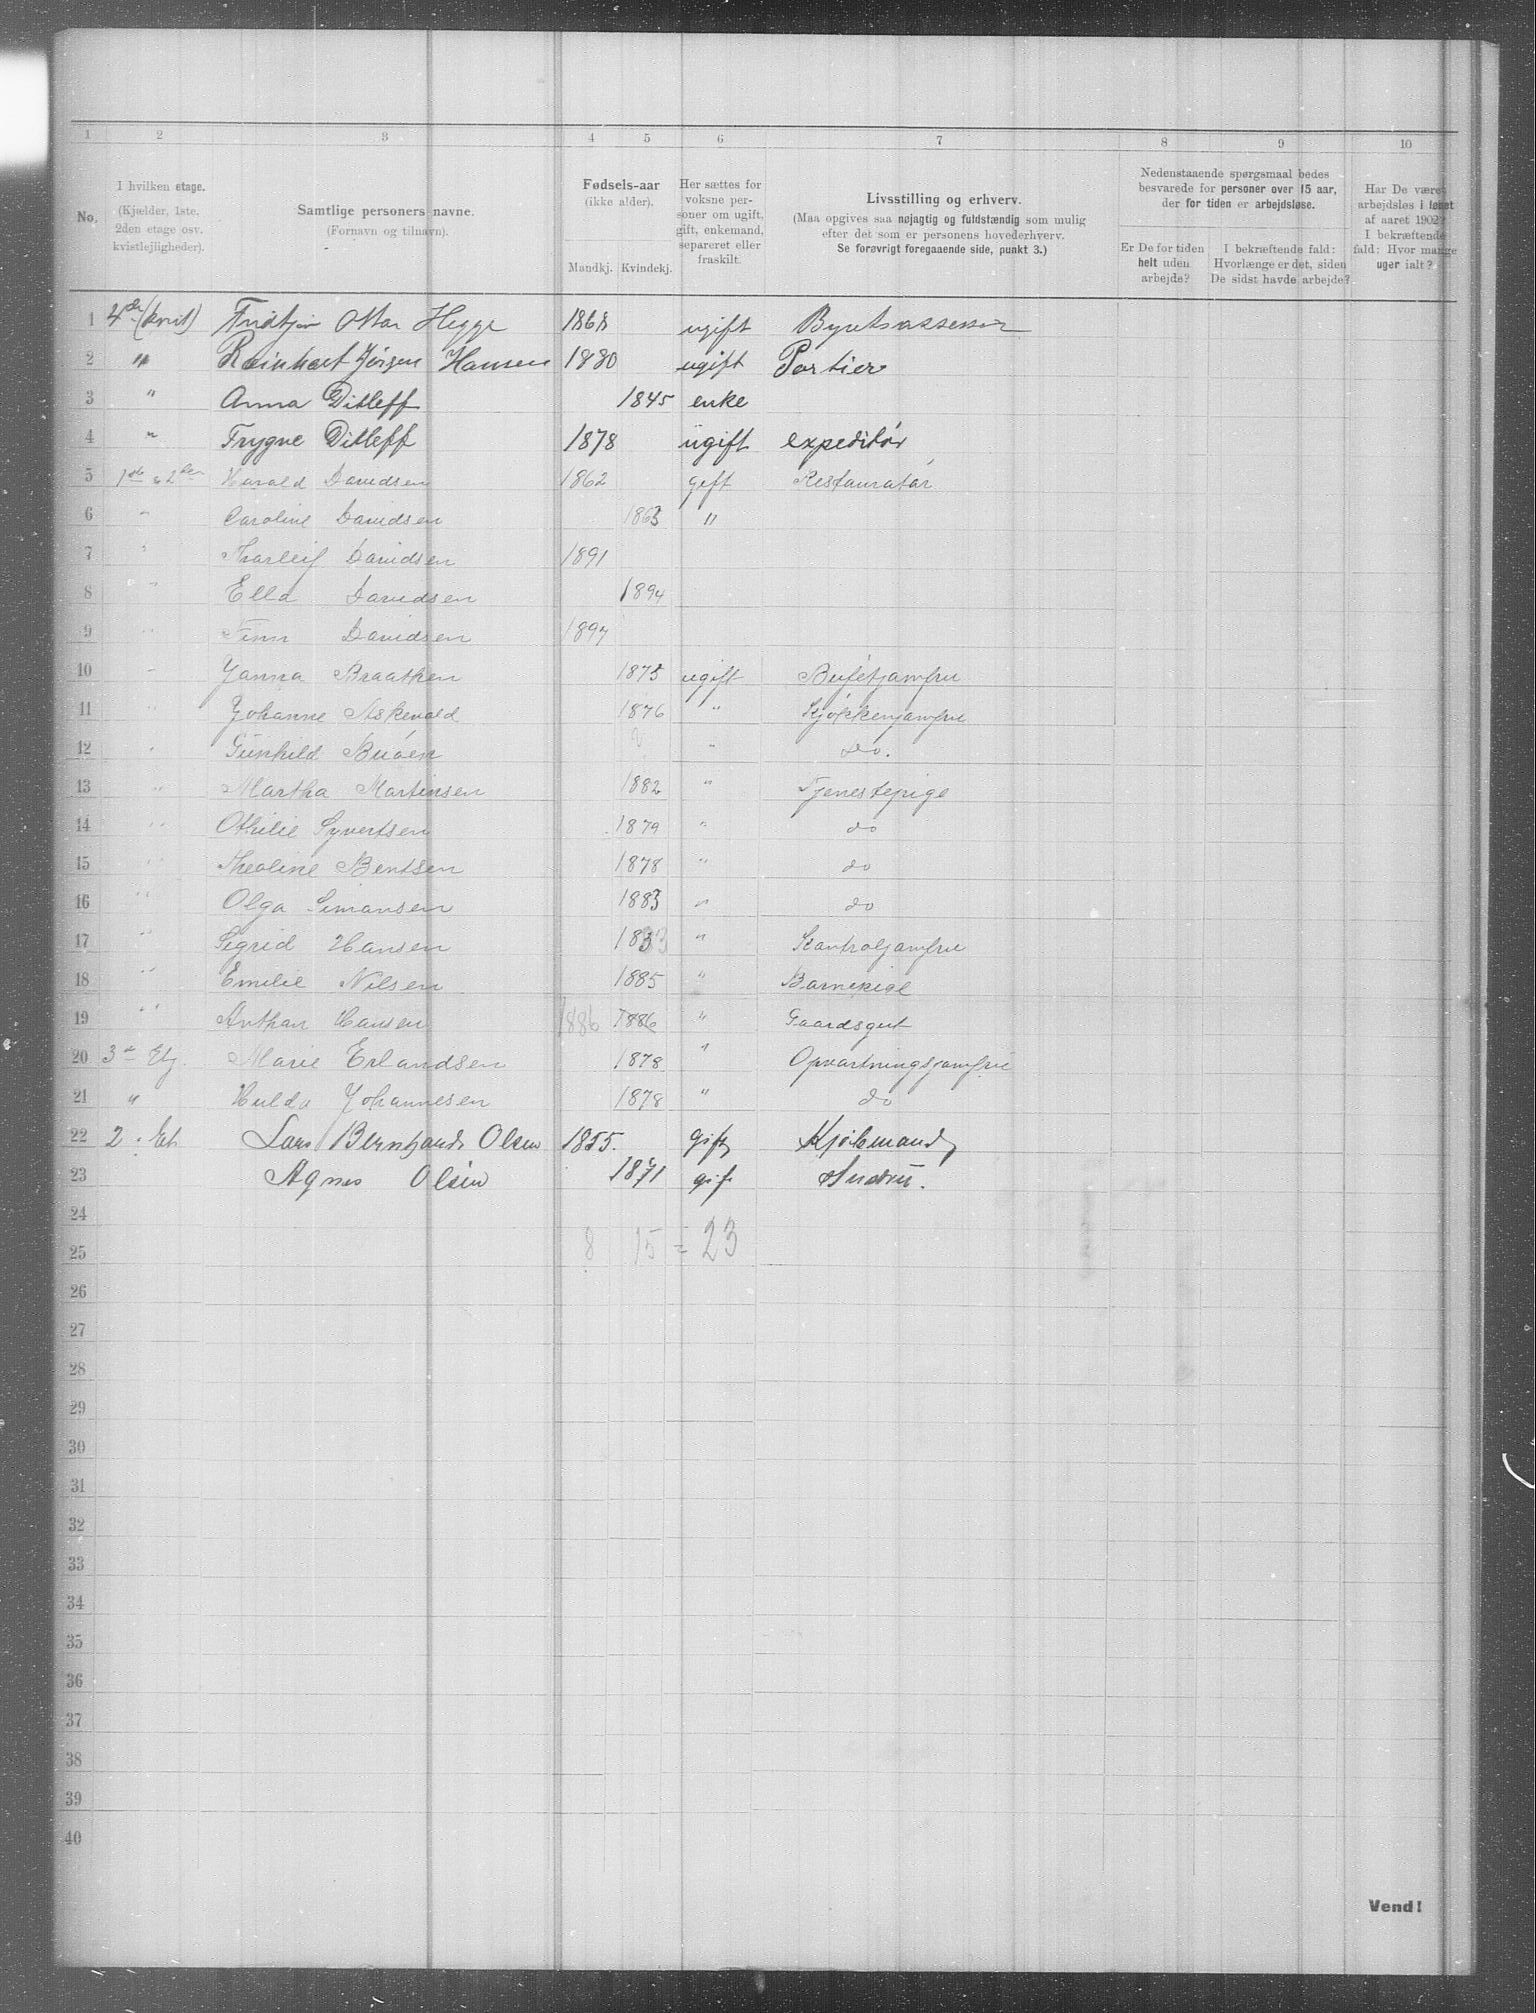 1 2 3 4 5 6 7 8 9 10
No.
I hvilken etage.
(Kjelder, 1ste,
2den etage osv.
kvistlejligheder).
Samtlige personers navne.
(Fornavn og tilnavn).
Fødsels-aar
(ikke alder).
Mandkj. Kvindekj.
Her sættes for
voksne per-
soner om ugift,
gift, enkemand,
separeret eller
fraskilt.
Livsstilling og erhverv.
(Maa opgives saa nøjagtig og fuldstændig som mulig
efter det som er personens hovederhverv.
Se forøvrigt foregaaende side, punkt 3.)
Nedenstaaende spørgsmaal bedes
besvarede for personer over 15 aar,
der for tiden er arbejdsløse.
Er De for tiden
helt uden
arbejde?
I bekræftende fald:
Hvorlænge er det, siden
De sidst havde arbejde?
Har De været
arbejdsløs i løbet
af aaret 1902?
I bekræftende
fald: Hvor mange
uger ialt?
1 4de (kvist) Fridtjov Ottar Hegge 1868 ugift Byretsassessor
2 " Reinhart Jørgen Hansen 1880 ugift Portier
3 " Anna Ditleff 1845 enke
4 " Trygve Ditleff 1878 ugift expeditør
5 1ste & 2den Harald Davidsen 1862 gift Restauratør
6 " Caroline Davidsen 1863 "
7 " Thorleif Davidsen 1891
8 " Ella Davidsen 1894
9 " Finn Davidsen 1897
10 " Janna Braathen 1875 ugift Bufetjomfru
11 " Johanne Askevold 1876 " Kjøkkenjomfru
12 " Gunhild Buøen " do.
13 " Martha Martinsen 1882 " Tjenestepige
14 " Othilie Syvertsen 1879 " do
15 " Theoline Bentsen 1878 " do
16 " Olga Simonsen 1883 " do
17 " Sigrid Hansen 1883 " Kontroljomfru
18 " Emilie Nilsen 1885 " Barnepige
19 " Anthon Hansen 1886 1886 " Gaardsgut
20 3de Etg. Marie Erlandsen 1878 " Opvartningsjomfru
21 " Hulda Johannesen 1878 " do
22 2. Et. Lars Bernhard Olsen 1855. gift Kjøbmand
23 Agnes Olsen 1871 gift Hustru.
24
8 15 = 23
25
26
27
28
29
30
31
32
33
34
35
36
37
38
39
40
Vend!